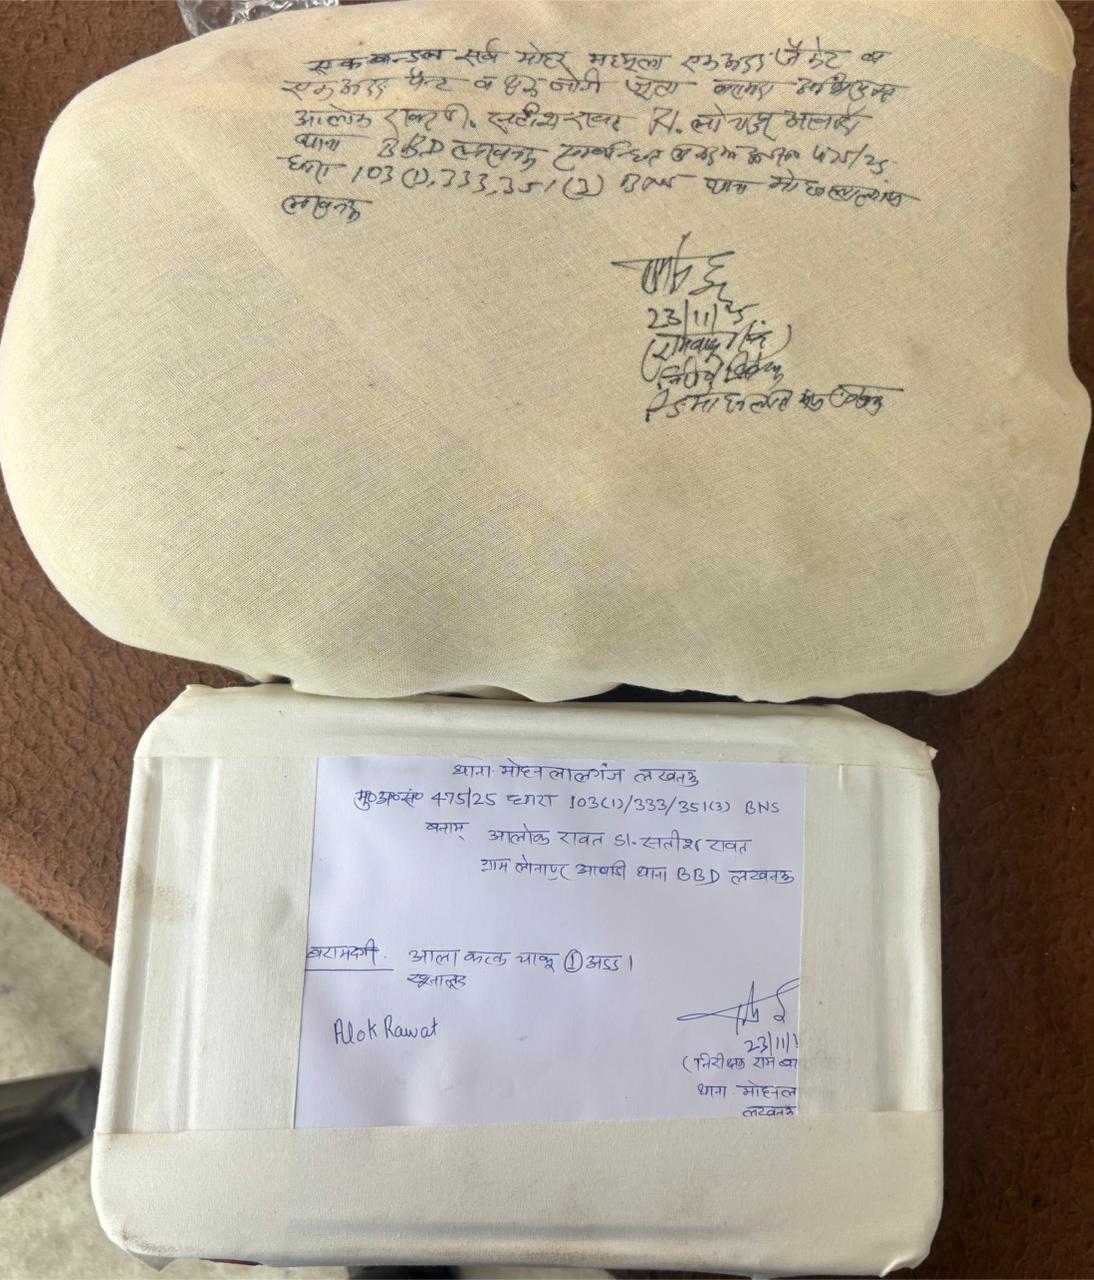 एक बन्डल सर्व मोहर मय मुल्ला एक अदद जैकेट व
एक अदद पैन्ट व एक जोड़ी जूता
आलोक रावत S/o. सतीश रावत R/o.
थाना BBD लखनऊ सम्बन्धित 475/25
धारा 103(1), 333, 351(3) BNS थाना मोहनलालगंज
लखनऊ
23/11/25
PS मोहनलालगंज लखनऊ
थाना मोहनलालगंज लखनऊ
मु०अ०सं० 475/25 धारा 103(1)/333/351(3) BNS
बनाम् आलोक रावत S/. सतीश रावत
ग्राम लोनापुर आवादी थाना BBD लखनऊ
बरामदगी. आला कत्ल चाकू ① अदद।
खूनालूद
Alok Rawat
23/11/
(निरीक्षक राम बा
थाना मोहनल
लखनऊ